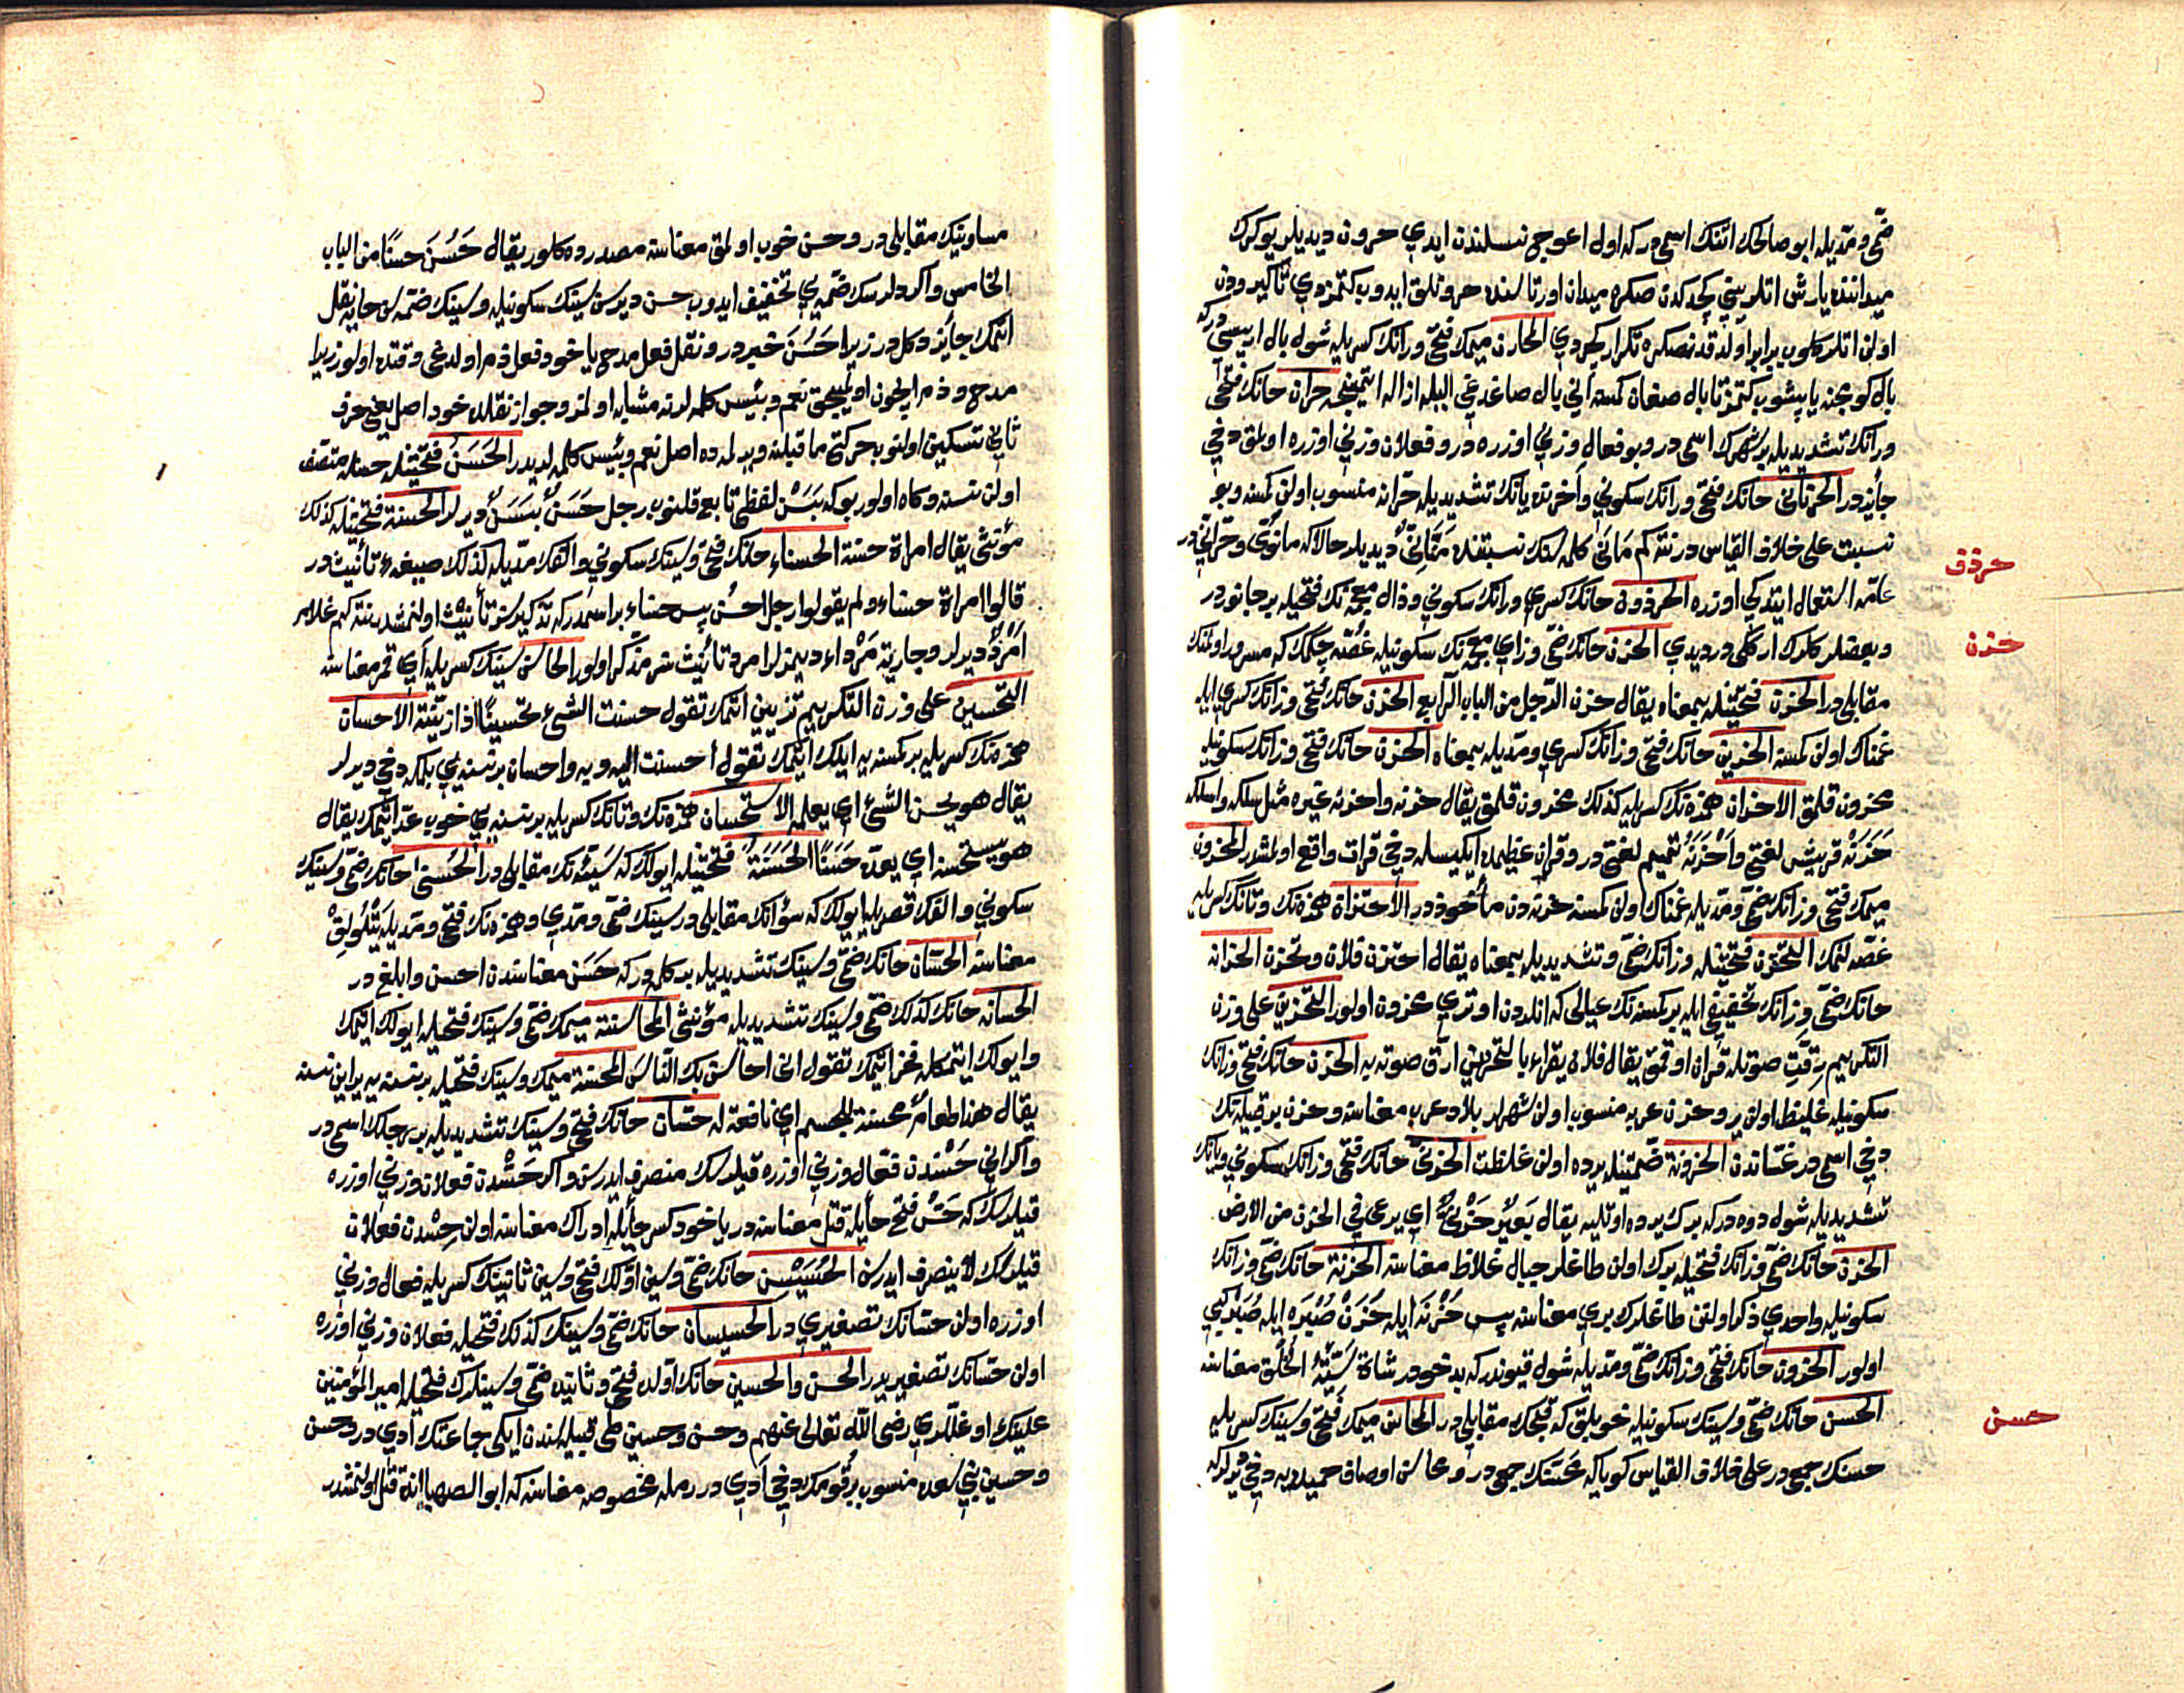 ضمّی و مدّیله ابو صالحك اتنك اسمی در كه اول اعوج نسلندن ایدی حرون دیدیلر یوكرك
میداننده یارش اتلرینی كچدكدن صكره میدان اورتاسنده حرونلق ایدوب كتمزدی تا كیرودن
اولن اتلر كلوب برابر اولدقدنصكره تكرار كچردی المحارن میمك فتحی و رانك كسریله شول بال اریسی در كه
بال كوجنه یاپشوب كتمز تا بال صغان كمسه انی بال صاغدغی الیله ازاله ایتمینجه حران حانك فتحی
و رانك تشدیدیله بر شهرك اسمی در و بو فعال وزنی اوزره در و فعلان وزنی اوزره اولمق دخی
جائز در الحرنانی حانك فتحی و رانك سكونی و آخرنده یانك تشدیدیله حرّانه منسوب اولن كمسه و بو
نسبت علی خلاف القیاس در نته كم مانی كلمه سنك نسبتنده منّانی دیدیلر حالا كه مانوی و حرّانی در
عامه استعمال ایتدكی اوزره الحرذون حانك كسری و رانك سكونی و ذال معجمه نك فتحیله بر جانور در
و بعضلر كلرك ارككی در دیدی الحزن حانك ضمی و زای معجمه نك سكونیله غصّه چكمك كه مسرور اولمنك
مقابلی در الحزن فتحتینله بمعناه یقال حزن الرّجل من الباب الرّابع الحزن حانك فتحی و زانك كسری ایله
غمناك اولن كمسه الحزین حانك فتحی و زانك كسری و مدّیله بمعناه الحزن حانك فتحی و زانك سكونیله
محزون قلمق الاحزان همزه نك كسریله كذلك محزون قلمق یقال حزنه و احزنه غیره مثل سلكه و اسلكه
حَزَنَهُ قریش لغتی و اَحْزَنَهُ تمیم لغتی در و قران عظیمده ایكیسیله دخی قرات واقع اولمشدر المحزون
میمك فتحی و زانك ضمّی و مدّیله غمناك اولن كمسه حزندن مأخوذ در الاحتزان همزه نك و تانك كسریله
غصّه لنمك التحزّن فتحتینله و زانك ضمّی و تشدیدیله بمعناه یقال احتزن فلان و تحزّن الحزانه
حانك ضمّی و زانك تخفیفی ایله بر كمسه نك عیالی كه انلردن اوتری محزون اولور التحزین علی وزن
التكریم رِقّتِ صوتله قران اوقمق یقال فلان یقراء بالتحزین ارقّ صوته به الحزن حانك فتحی و زانك
سكونیله غلیظ اولن یر و حزن عربه منسوب اولن شهرلر بلاد عرب معناسنه و حزن بر قبیله نك
دخی اسمی در غسّاندن الحزونة ضمّتینله یرده اولن غلظت الحزنیّ حانك فتحی و زانك سكونی و یانك
تشدیدیله شول دوه در كه برك یرده اوتلیه یقال بَعیرٌ حَزْنیٌّ ای یرعی فی الحزن من الارض
الحزن حانك ضمّی و زانك فتحیله برك اولن طاغلر جبال غلاظ معناسنه الحزنة حانك ضمّی و زانك
سكونیله واحدی ذكر اولنن طاغلرك بری معناسنه پس حُزْنَه ایله حُزَنْ صُبْرَه ایله صُبَرْ كبی
اولور الحزون حانك فتحی و زانك ضمّی و مدّیله شول قیوندر كه بدخو در شاة سیّئةُ الخُلُق معناسنه
الحسن حانك ضمّی و سینك سكونیله خوبلق كه قبحك مقابلی در المحاسن میمك فتحی و سینك كسریله
حسنك جمعی در علی خلاف القیاس كویا كه محسنك جمعی در و محاسن اوصاف حمیده یه دخی دیرلر كه
حرذق
حزن
حسن
مساوینك مقابلی در و حسن خوب اولمق معناسنه مصدر ده كلور یقال حَسُنَ حسنًا من الباب
الخامس و اكر دلرسك ضمّه یی تخفیف ایدوب حسن دیرسن سینك سكونیله و سینك ضمّه سن حایه نقل
اتمك جایز دكل در زیرا حَسُنَ خبر در و نقل فعل مدح یاخود فعل ذم اولدغی وقتده اولور زیرا
مدح و ذم ایچون اولیجق نعم و بئیس كلمه لرینه مشابه اولنور و جواز نقلده خود اصل یعنی حرف
ثانی تسكین اولنوب حركتی ما قبلنه ویرلمده اصل نعم و بئیس كلمه لریدر الحَسَن فتحتینله حسنله متّصف
اولن نسنه و كاه اولور بوكه بَسَنْ لفظی تابع قلنوب رجل حَسَنٌ بَسَنٌ دیرلر الحسنة فتحتینله كذلك
مؤنثی یقال امراة حسنة الحسناء حانك فتحی و سینك سكونی و الفك مدّیله كذلك صیغهء تانیث در
قالوا امراة حسناء و لم یقولوا رجل احسن پس حسناء بر اسمدر كه تذكیرسز تأنیث اولنمشدر نته كم غلام
اَمْرَدُ دیرلر و جاریة مَرْداء دیمزلر امرد تأنیثسز مذكر اولور الحاسن سینك كسریله آی قمر معناسنه
التّحسین علی وزن التكریم تزیین اتمك تقول حسنت الشیء تحسینًا اذا زیّنته الاحسان
همزه نك كسریله بر كمسه یه ایلك ایتمك تقول احسنت الیه و به و احسان بر نسنه یی بلمكه دخی دیرلر
یقال هو یحسن الشیء ای یعلمه الاستحسان همزه نك و تانك كسریله بر نسنه یی خوب عدّ ایتمك یقال
هو یستحسنه ای یعدّه حَسَنًا الحَسَنَةُ فتحتینله ایولك كه سیّئه نك مقابلی در الحُسنی حانك ضمّی و سینك
سكونی و الفك قصریله ایولك كه سؤانك مقابلی در سینك ضمّی و مدّی و همزه نك فتحی و مدّیله یَتْلُولِقْ
معناسنه الحُسّان حانك ضمّی و سینك تشدیدیله بر كلمه در كه حَسَن معناسندن احسن و ابلغ در
الحسانه حانك كذلك ضمّی و سینك تشدیدیله مؤنثی المحاسنة میمك ضمّی و سینك فتحیله ایولك ایتمك
و ایولك ایتمكله فخر ایتمك تقول انی احاسن بك النّاس المحسنة میمك و سینك فتحیله بر نسنه یه یراین نسنه
یقال هذا طعامٌ محسنة للجسم ای نافعة له حسّان حانك فتحی و سینك تشدیدیله بر رجلك اسمی در
و اكر انی حُسْندن فعّال وزنی اوزره قیلورسك منصرف ایدرسن و اكر حَسْدن فعلان وزنی اوزره
قیلورسك كه حَسْ فتح حایله قتل معناسنه در یاخود كسر حایله ادراك معناسنه اولن حِسْدن فعلان
قیلورسك لا ینصرف ایدرسن الحُسَیْسِن حانك ضمّی و سین اوّلك فتحی و سین ثانینك كسریله فعال وزنی
اوزره اولن حسّانك تصغیری در الحسیسان حانك ضمّی و سینك كذلك فتحیله فعلان وزنی اوزره
اولن حسّانك تصغیریدر الحسن و الحسین حانك اوّلده فتحی و ثانیده ضمّی و سینلرك فتحیله امیر المؤمنین
علینك اوغللری رضی الله تعالی عنهم و حسن و حسین طی قبیله سندن ایكی جماعتك ادی در و حسن
و حسین بنی سعده منسوب بر قومك دخی ادی در رمله مخصوصه معناسنه كه ابو الصهبا انده قتل اولنمشدر